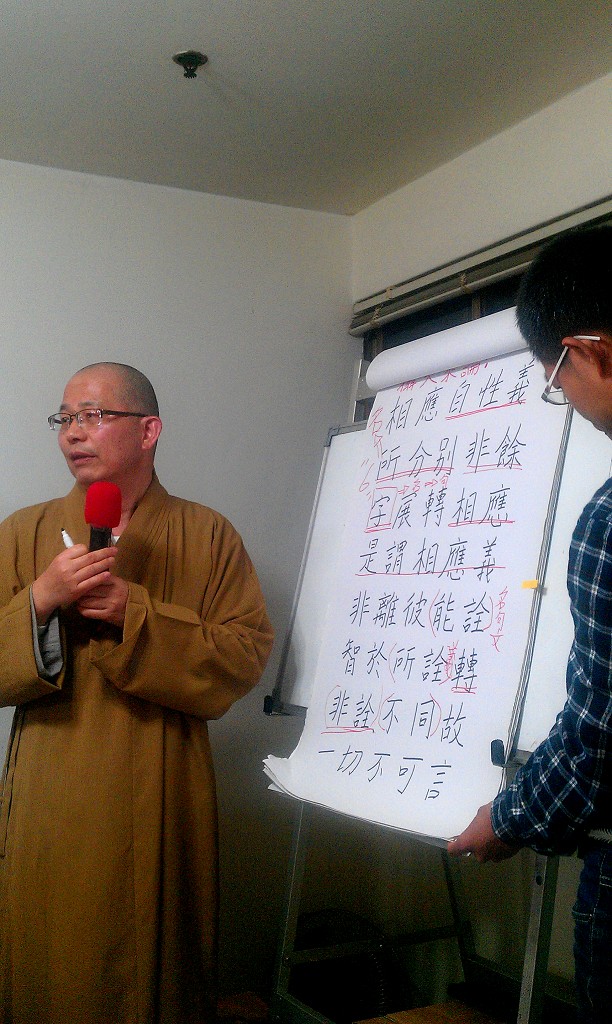 相應自性義
所分別非餘
字展轉相應
是謂相應義
非離彼能詮
智於所詮轉
非詮不同故
一切不可言